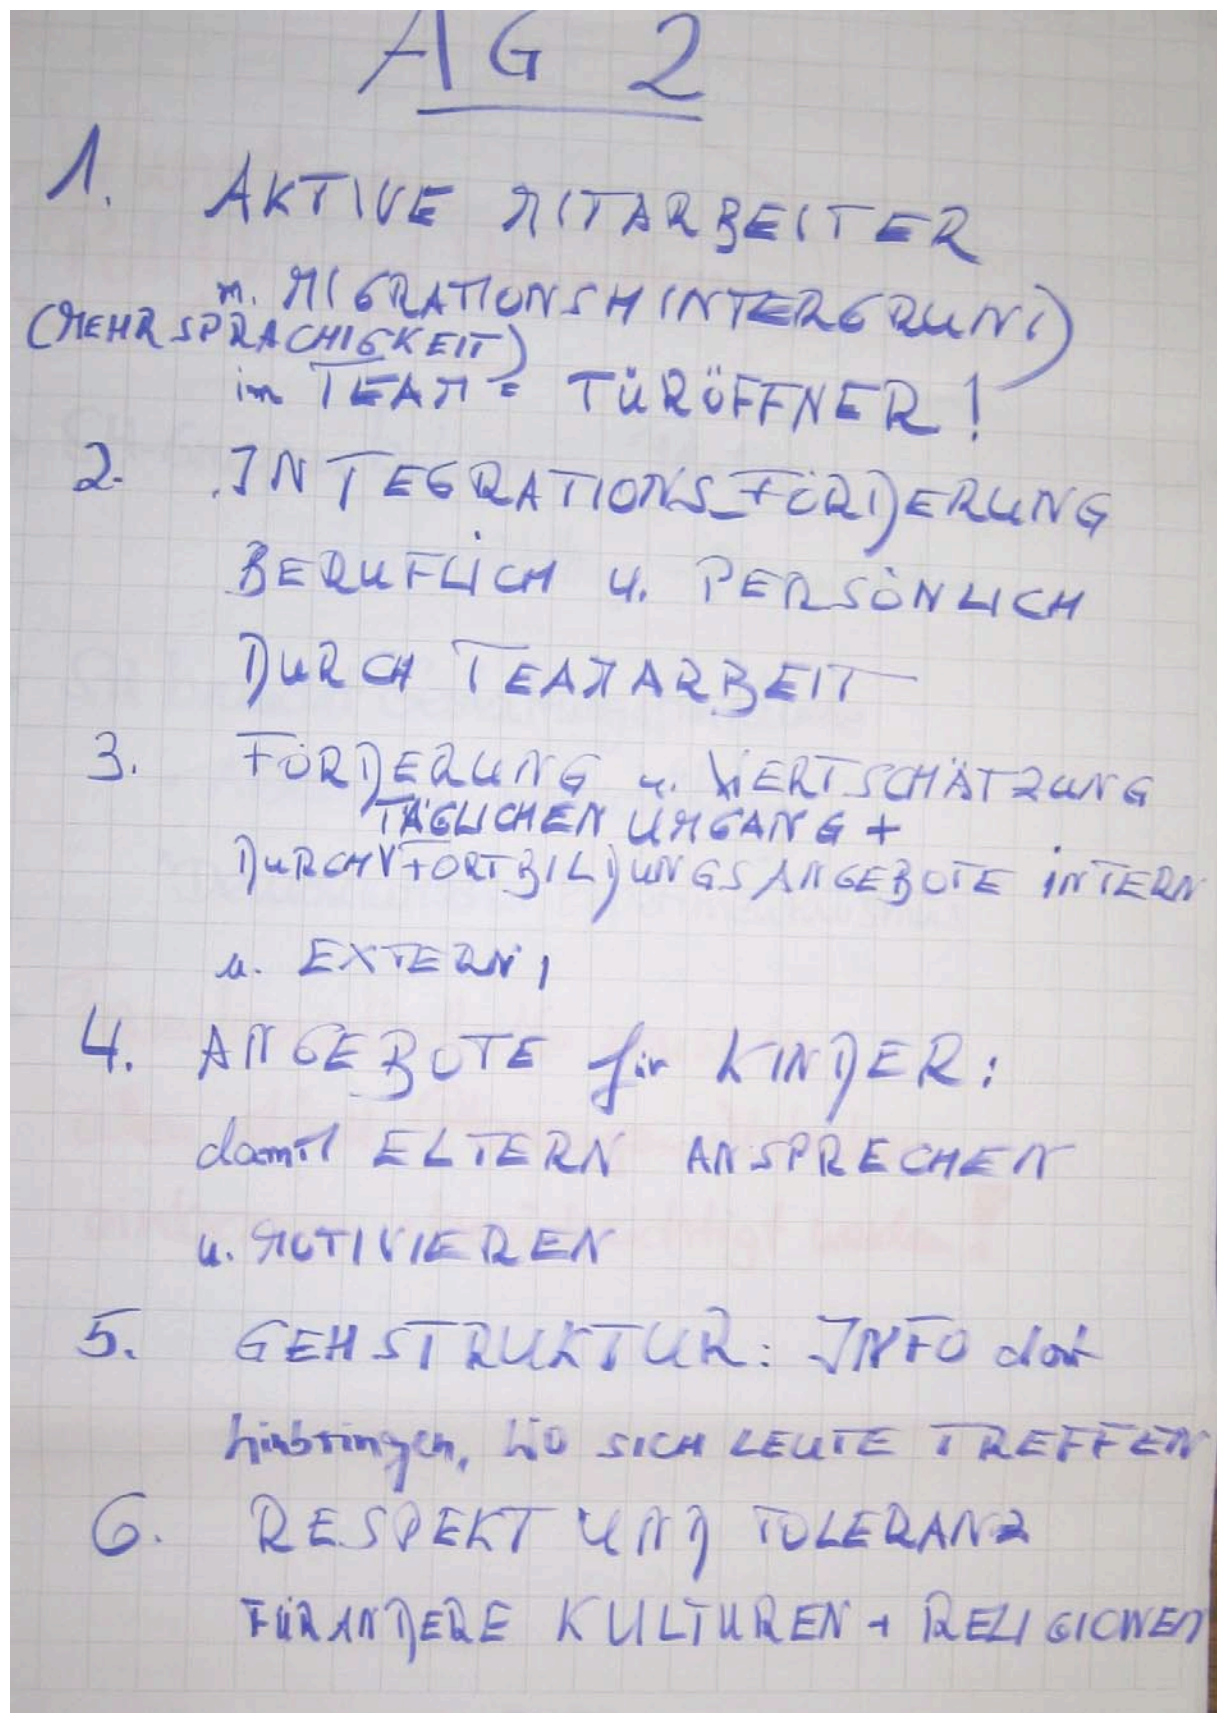 AG 2
1. AKTIVE MITARBEITER
m. MIGRATIONSHINTERGRUND
(MEHRSPRACHIGKEIT)
im TEAM = TÜRÖFFNER!
2. INTEGRATIONS-FÖRDERUNG
BERUFLICH u. PERSÖNLICH
DURCH TEAMARBEIT
3. FÖRDERUNG u. WERTSCHÄTZUNG
TÄGLICHEN UMGANG +
DURCH FORTBILDUNGSANGEBOTE INTERN
u. EXTERN,
4. ANGEBOTE für KINDER:
damit ELTERN ANSPRECHEN
u. MOTIVIEREN
5. GEHSTRUKTUR: INFO dort
hinbringen, WO SICH LEUTE TREFFEN
6. RESPEKT UND TOLERANZ
FÜR ANDERE KULTUREN + RELIGIONEN